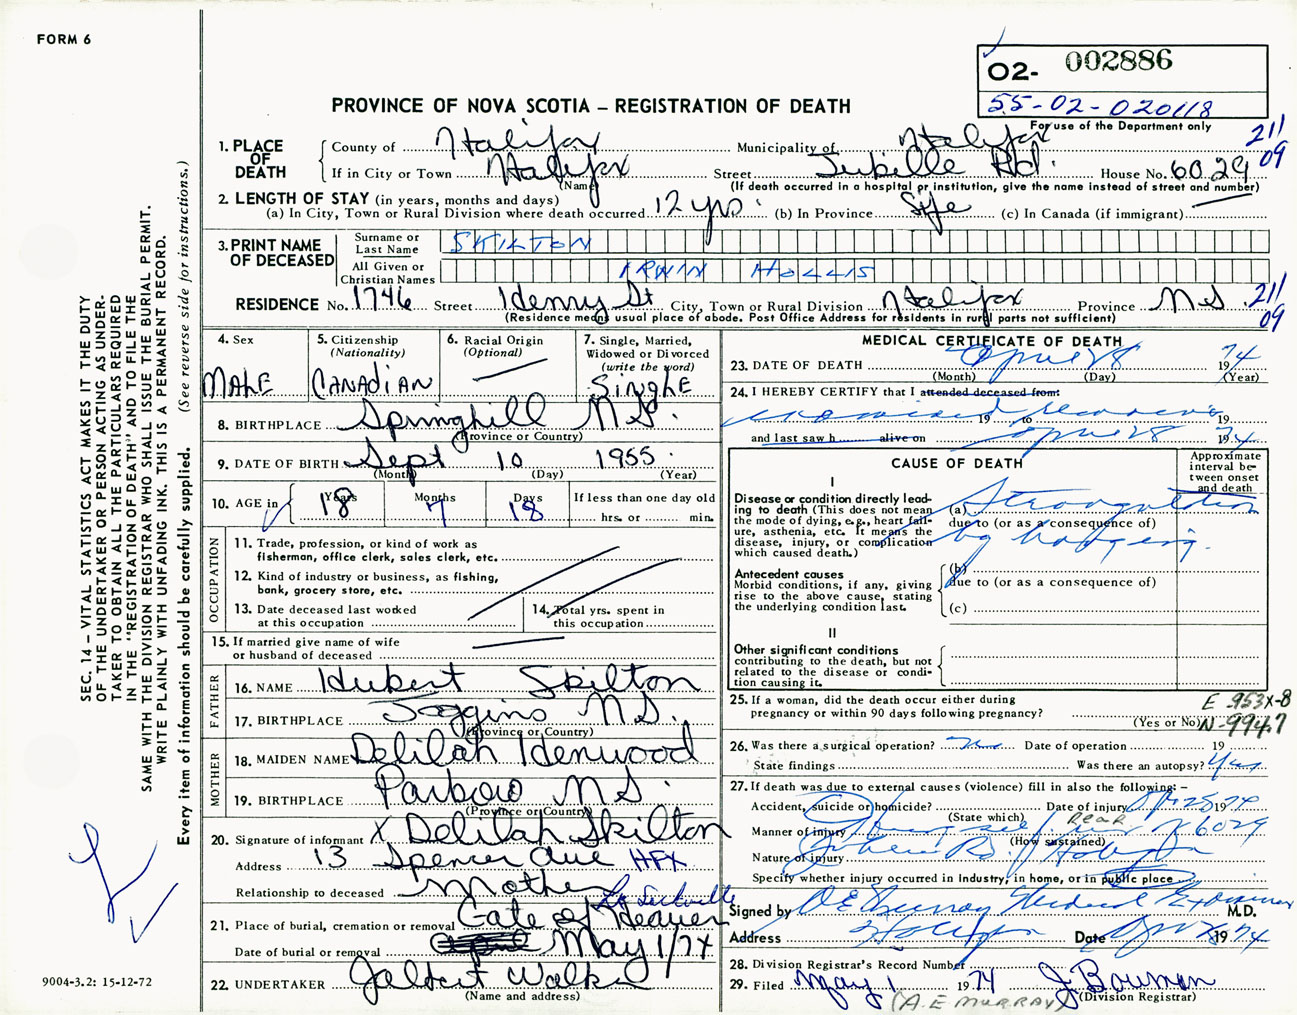 FORM 6
O2- 002886
55-02-020118
For use of the Department only
PROVINCE OF NOVA SCOTIA – REGISTRATION OF DEATH
211
09
1. PLACE OF DEATH
County of Halifax Municipality of Halifax
If in City or Town Halifax Street Jubille Rd. House No. 6029
(Name) (If death occurred in a hospital or institution, give the name instead of street and number)
2. LENGTH OF STAY (in years, months and days)
(a) In City, Town or Rural Division where death occurred 12 yrs. (b) In Province Life (c) In Canada (if immigrant)
3. PRINT NAME OF DECEASED
Surname or Last Name SKILTON
All Given or Christian Names IRWIN HOLLIS
RESIDENCE No. 1746 Street Henry St City, Town or Rural Division Halifax Province N.S. 211
09
(Residence means usual place of abode. Post Office Address for residents in rural parts not sufficient)
4. Sex
MALE
5. Citizenship (Nationality)
CANADIAN
6. Racial Origin (Optional)
7. Single, Married, Widowed or Divorced (write the word)
SINGLE
8. BIRTHPLACE Springhill N.S.
(Province or Country)
9. DATE OF BIRTH Sept 10 1955
(Month) (Day) (Year)
10. AGE in Years 18 Months 7 Days 18
If less than one day old
hrs. or min.
OCCUPATION
11. Trade, profession, or kind of work as
fisherman, office clerk, sales clerk, etc.
12. Kind of industry or business, as fishing,
bank, grocery store, etc.
13. Date deceased last worked
at this occupation
14. Total yrs. spent in
this occupation
15. If married give name of wife
or husband of deceased
FATHER
16. NAME Hubert Skilton
17. BIRTHPLACE Joggins N.S.
(Province or Country)
MOTHER
18. MAIDEN NAME Delilah Henwood
19. BIRTHPLACE N.S.
(Province or Country)
20. Signature of informant X Delilah Skilton
Address 13 Spencer Ave HFX
Relationship to deceased Mother
21. Place of burial, cremation or removal Gate of Heaven Lr Sackville
Date of burial or removal May 1/74
22. UNDERTAKER Walker
(Name and address)
MEDICAL CERTIFICATE OF DEATH
23. DATE OF DEATH April 28 1974
(Month) (Day) (Year)
24. I HEREBY CERTIFY that I attended deceased from:
examined 19 to 19
and last saw h alive on April 28 1974
CAUSE OF DEATH
Approximate interval between onset and death
I
Disease or condition directly lead-
ing to death (This does not mean
the mode of dying, e.g., heart fail-
ure, asthenia, etc. It means the
disease, injury, or complication
which caused death.)
(a) Strangulation
due to (or as a consequence of)
by hanging.
Antecedent causes
Morbid conditions, if any, giving
rise to the above cause, stating
the underlying condition last.
(b)
due to (or as a consequence of)
(c)
II
Other significant conditions
contributing to the death, but not
related to the disease or condi-
tion causing it.
25. If a woman, did the death occur either during
pregnancy or within 90 days following pregnancy?
(Yes or No)
E 953X-8
N-994.7
26. Was there a surgical operation? no Date of operation 19
State findings Was there an autopsy? Yes
27. If death was due to external causes (violence) fill in also the following: –
Accident, suicide or homicide? Date of injury 1974
(State which) REAR
Manner of injury 6029
(How sustained)
Nature of injury Rd. Halifax
Specify whether injury occurred in Industry, in home, or in public place
Signed by Murray Medical Examiner M.D.
Address Halifax Date 1974
28. Division Registrar's Record Number
29. Filed May 1 1974 J Bowman
(Division Registrar)
(A. E MURRAY)
SEC. 14 – VITAL STATISTICS ACT MAKES IT THE DUTY
OF THE UNDERTAKER OR PERSON ACTING AS UNDER-
TAKER TO OBTAIN ALL THE PARTICULARS REQUIRED
IN THE "REGISTRATION OF DEATH" AND TO FILE THE
SAME WITH THE DIVISION REGISTRAR WHO SHALL ISSUE THE BURIAL PERMIT.
WRITE PLAINLY WITH UNFADING INK. THIS IS A PERMANENT RECORD.
Every item of information should be carefully supplied. (See reverse side for instructions.)
9004-3.2: 15-12-72